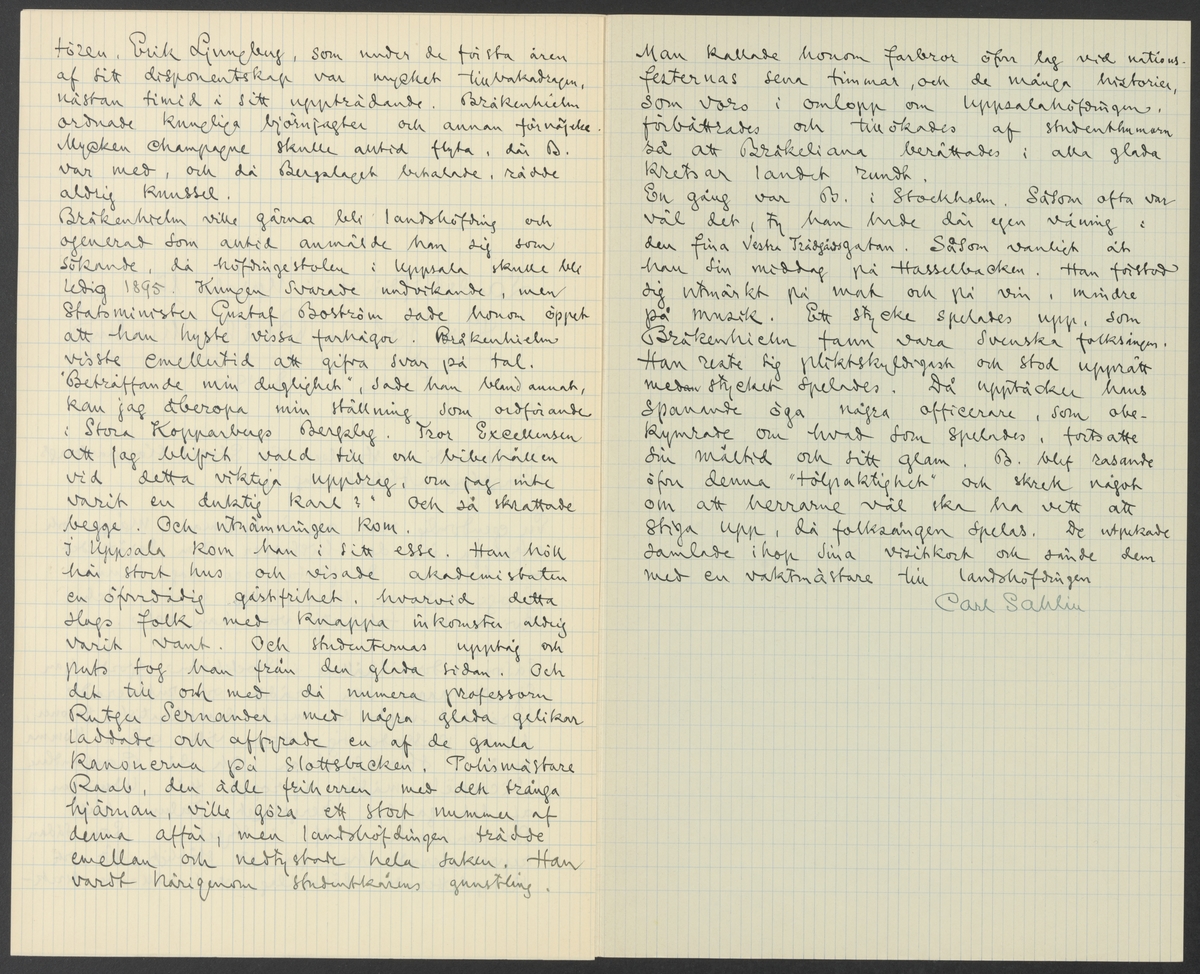 tören, Erik Ljungberg, som under de första åren
af sitt disponentskap var mycket tillbakadragen,
nästan timid i sitt uppträdande. Bråkenhielm
ordnade kungliga björnjagter och annan förnöjelse.
Mycken champagne skulle alltid flyta, där B.
var med, och då Bergslaget betalade, rådde
aldrig knussel.
Bråkenhielm ville gärna bli landshöfding och
ogenerad som alltid anmälde han sig som
sökande, då höfdingestolen i Uppsala skulle bli
ledig 1895. Kungen svarade undvikande, men
Statsminister Gustaf Boström sade honom öppet
att han hyste vissa farhågor. Bråkenhielm
visste emellertid att gifva svar på tal.
"Beträffande min duglighet", sade han bland annat,
kan jag åberopa min ställning som ordförande
i Stora Kopparbergs Bergslag. Tror Excellensen
att jag blifvit vald till och bibehållen
vid detta viktiga uppdrag, om jag inte
varit en duktig karl?" Och så skrattade
begge. Och utnämningen kom.
I Uppsala kom han i sitt esse. Han höll
här stort hus och visade akademistaten
en öfverdådig gästfrihet, hvarvid detta
slags folk med knappa inkomster aldrig
varit vant. Och studenternas upptåg och
puts tog han från den glada sidan. Och
det till och med då numera professorn
Rutger Sernander med några glada gelikar
laddade och affyrade en af de gamla
kanonerna på Slottsbacken. Polismästare
Raab, den ädle friherren med den trånga
hjärnan, ville göra ett stort nummer af
denna affär, men landshöfdingen trädde
emellan och nedtystade hela saken. Han
vardt härigenom studentkårens gunstling.
Man kallade honom farbror öfver lag vid nations-
festernas sena timmar, och de många historier,
som voro i omlopp om Uppsalahöfdingen,
förbättrades och tillökades af studenthumorn
så att Bråkeliana berättades i alla glada
kretsar landet rundt.
En gång var B. i Stockholm. Såsom ofta var
väl det, ty han hade där egen våning i
den fina Vestra Trädgårdsgatan. Såsom vanligt åt
han sin middag på Hasselbacken. Han förstod
sig utmärkt på mat och på vin, mindre
på musik. Ett stycke spelades upp, som
Bråkenhielm fann vara Svenska folksången.
Han reste sig pliktskyldigast och stod upprätt
medan stycket spelades. Då upptäcker hans
spanande öga några officerare, som obe-
kymrade om hvad som spelades, fortsatte
sin måltid och sitt glam. B. blef rasande
öfver denna "tölpaktighet" och skrek något
om att herrarne väl ska ha vett att
stiga upp, då folksången spelas. De utpekade
samlade ihop sina visitkort och sände dem
med en vaktmästare till landshöfdingen
Carl Sahlin